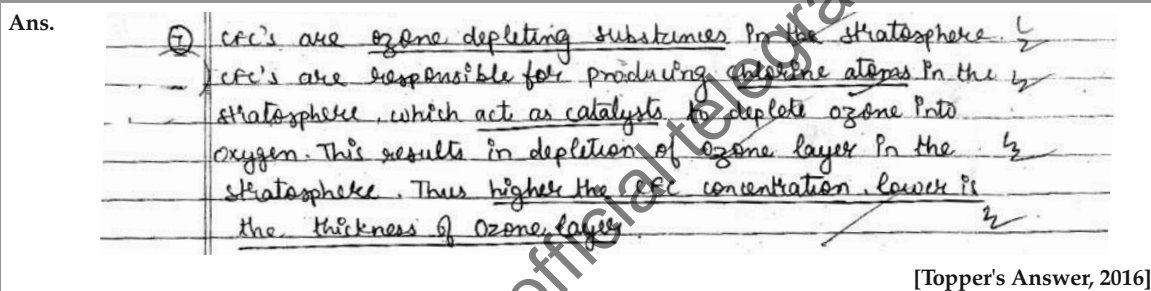 Ans.
7 CFC's are ozone depleting substances in the stratosphere. ½
CFC's are responsible for producing chlorine atoms in the ½
stratosphere, which act as catalysts to deplete ozone into
oxygen. This results in depletion of ozone layer in the ½
stratosphere. Thus higher the CFC concentration, lower is
the thickness of ozone layer. ½
officialtelegra
[Topper's Answer, 2016]